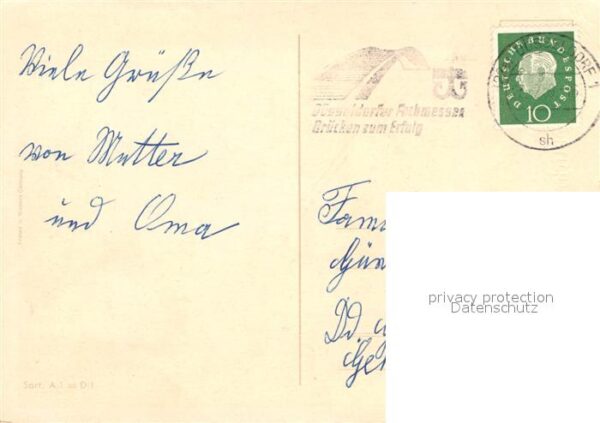 Viele Grüße
von Mutter
und Oma
Sort. A 1
Düsseldorfer Fachmessen
Brücken zum Erfolg
DEUTSCHE BUNDESPOST
10
sh
Fam
Dd.
privacy protection
Datenschutz